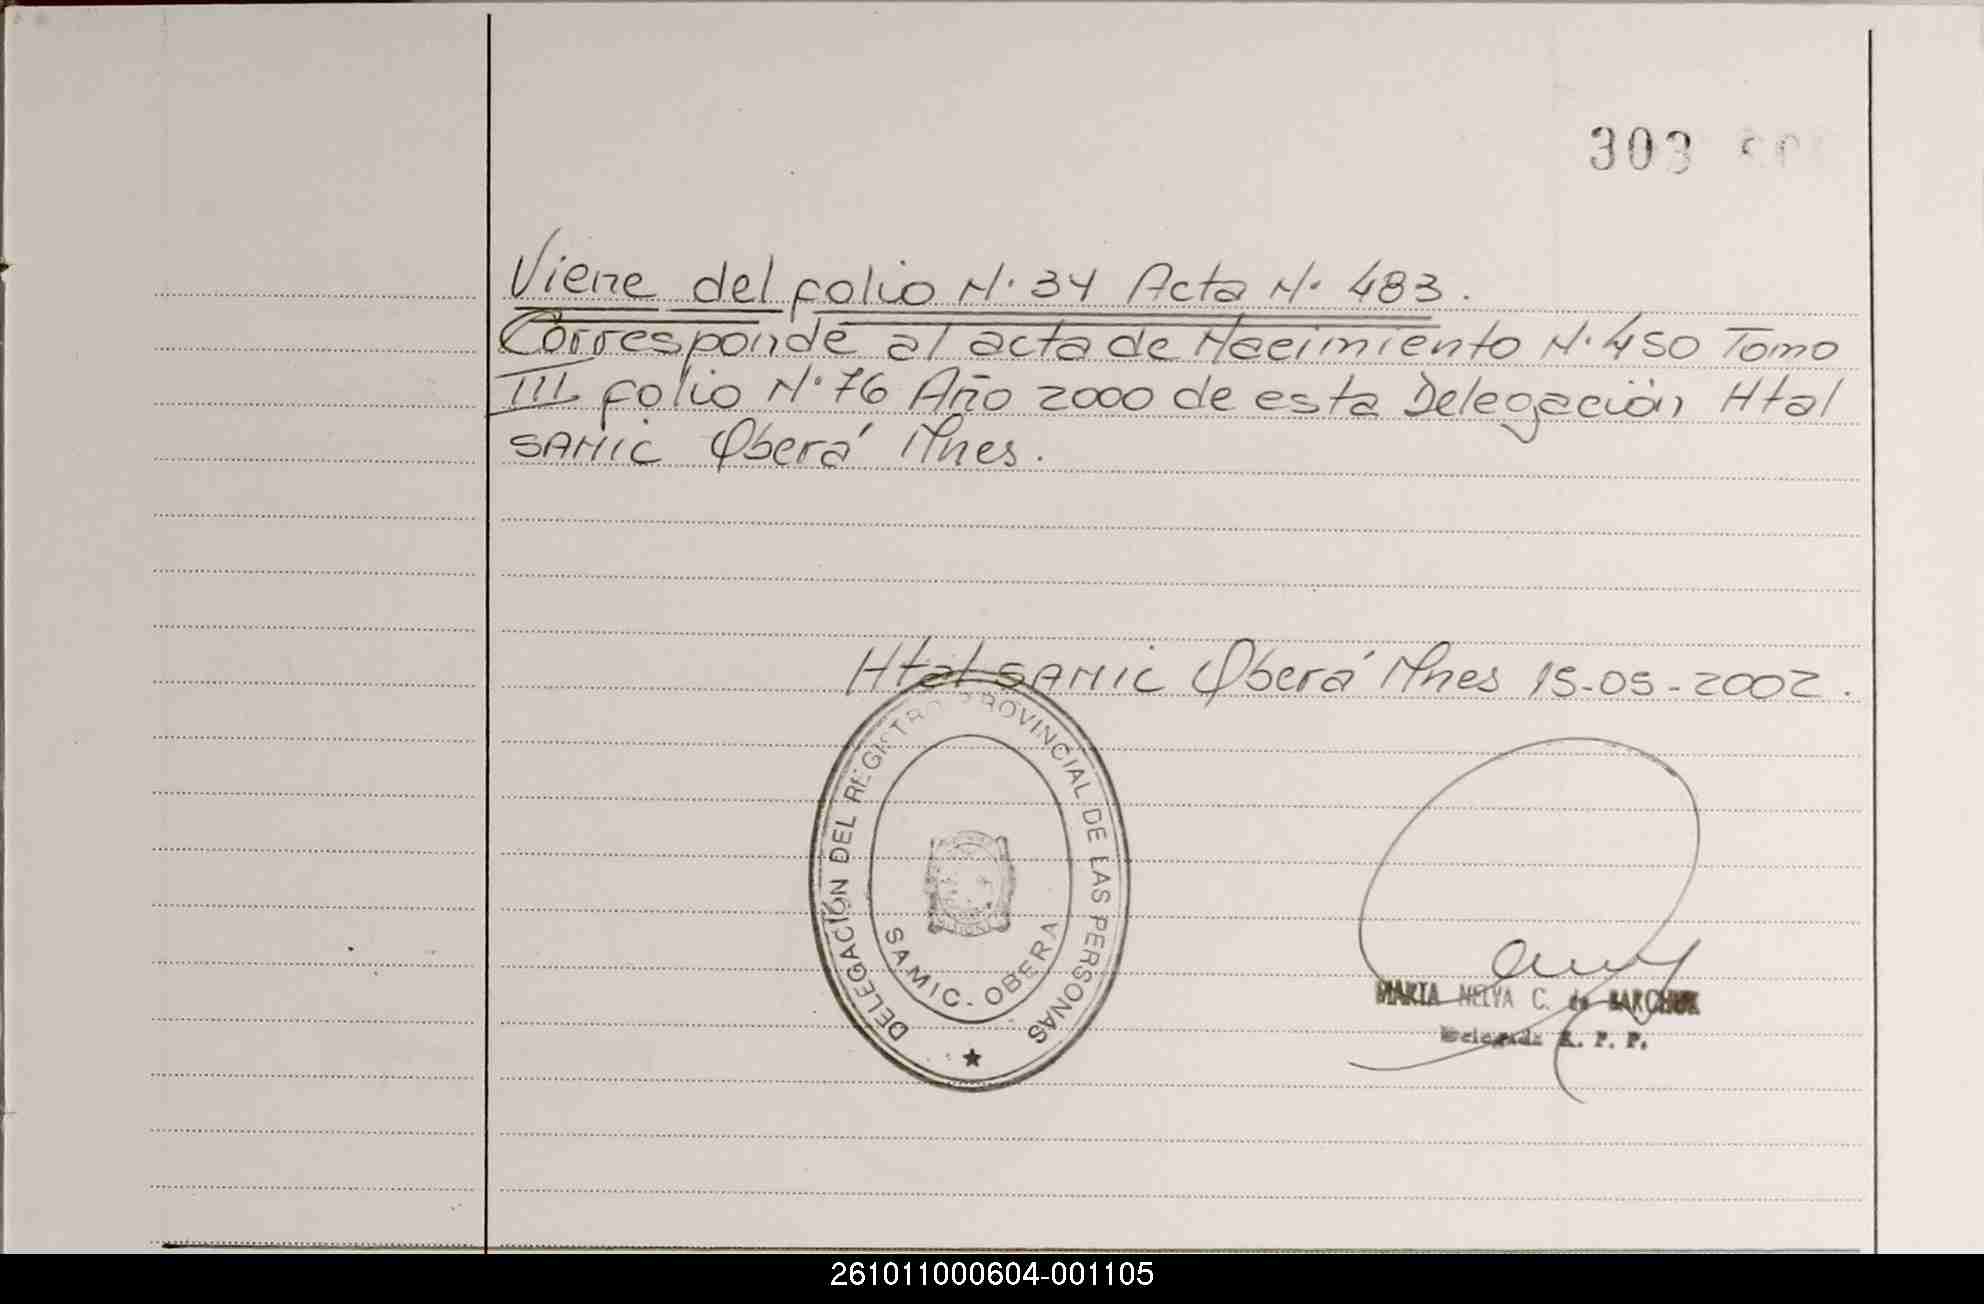 303
Viene del folio N. 34 Acta N. 483.
Corresponde al acta de Nacimiento N. 450 Tomo
III folio N. 76 Año 2000 de esta Delegación Htal
SAMIC Oberá Mnes.
Htal SAMIC Oberá Mnes 15-05-2002.
DELEGACIÓN DEL REGISTRO PROVINCIAL DE LAS PERSONAS
SAMIC - OBERA
MARIA NELVA C. de BARCHUK
Delegada R. P. P.
261011000604-001105